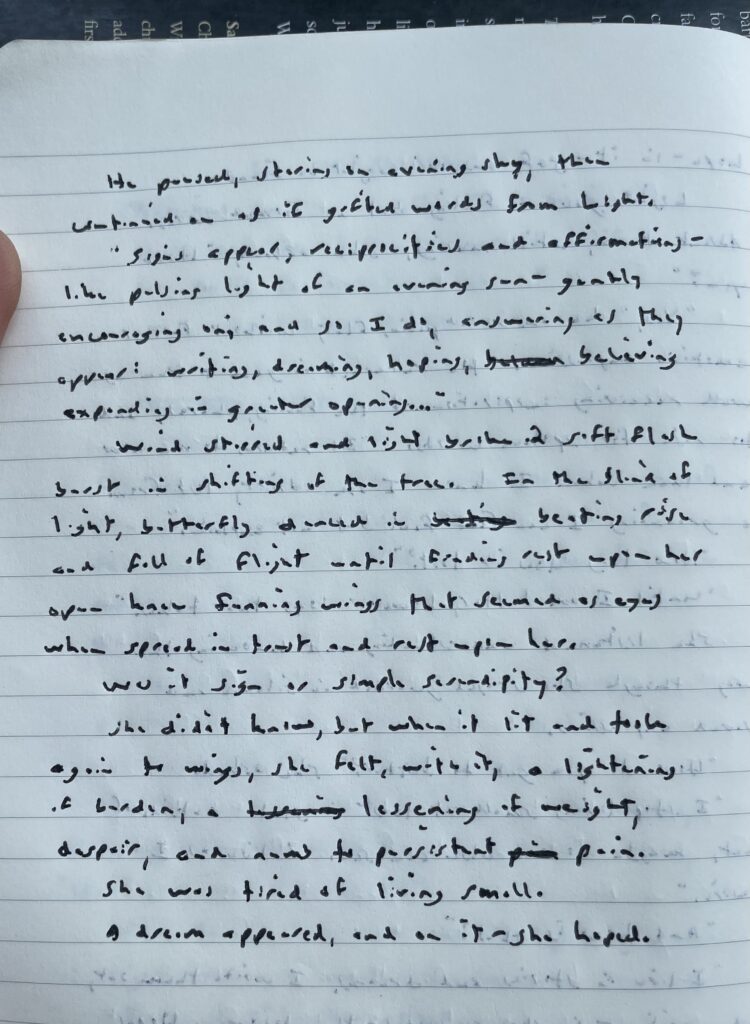 He paused, staring on evening sky, then
continued on as if gifted words from light.
"Signs appear, reciprocities and affirmations-
like pulsing light of an evening sun- gently
encouraging on; and so I do, answering as they
appear: writing, dreaming, hoping, believing
expanding in greater opening..."
Wind stirred and light broke in soft flash
burst in shifting of the tree. In the blink of
light, butterfly danced in beating rise
and fall of flight until finding rest upon her
open knee fanning wings that seemed as eyes
when spread in trust and rest upon her.
Was it sign or simple serendipity?
She didn't know, but when it lit and took
again to wings, she felt, with it, a lightening
of burden, a lessening of weight,
despair, and numb to persistent pain.
She was tired of living small.
A dream appeared, and on it-she hoped.